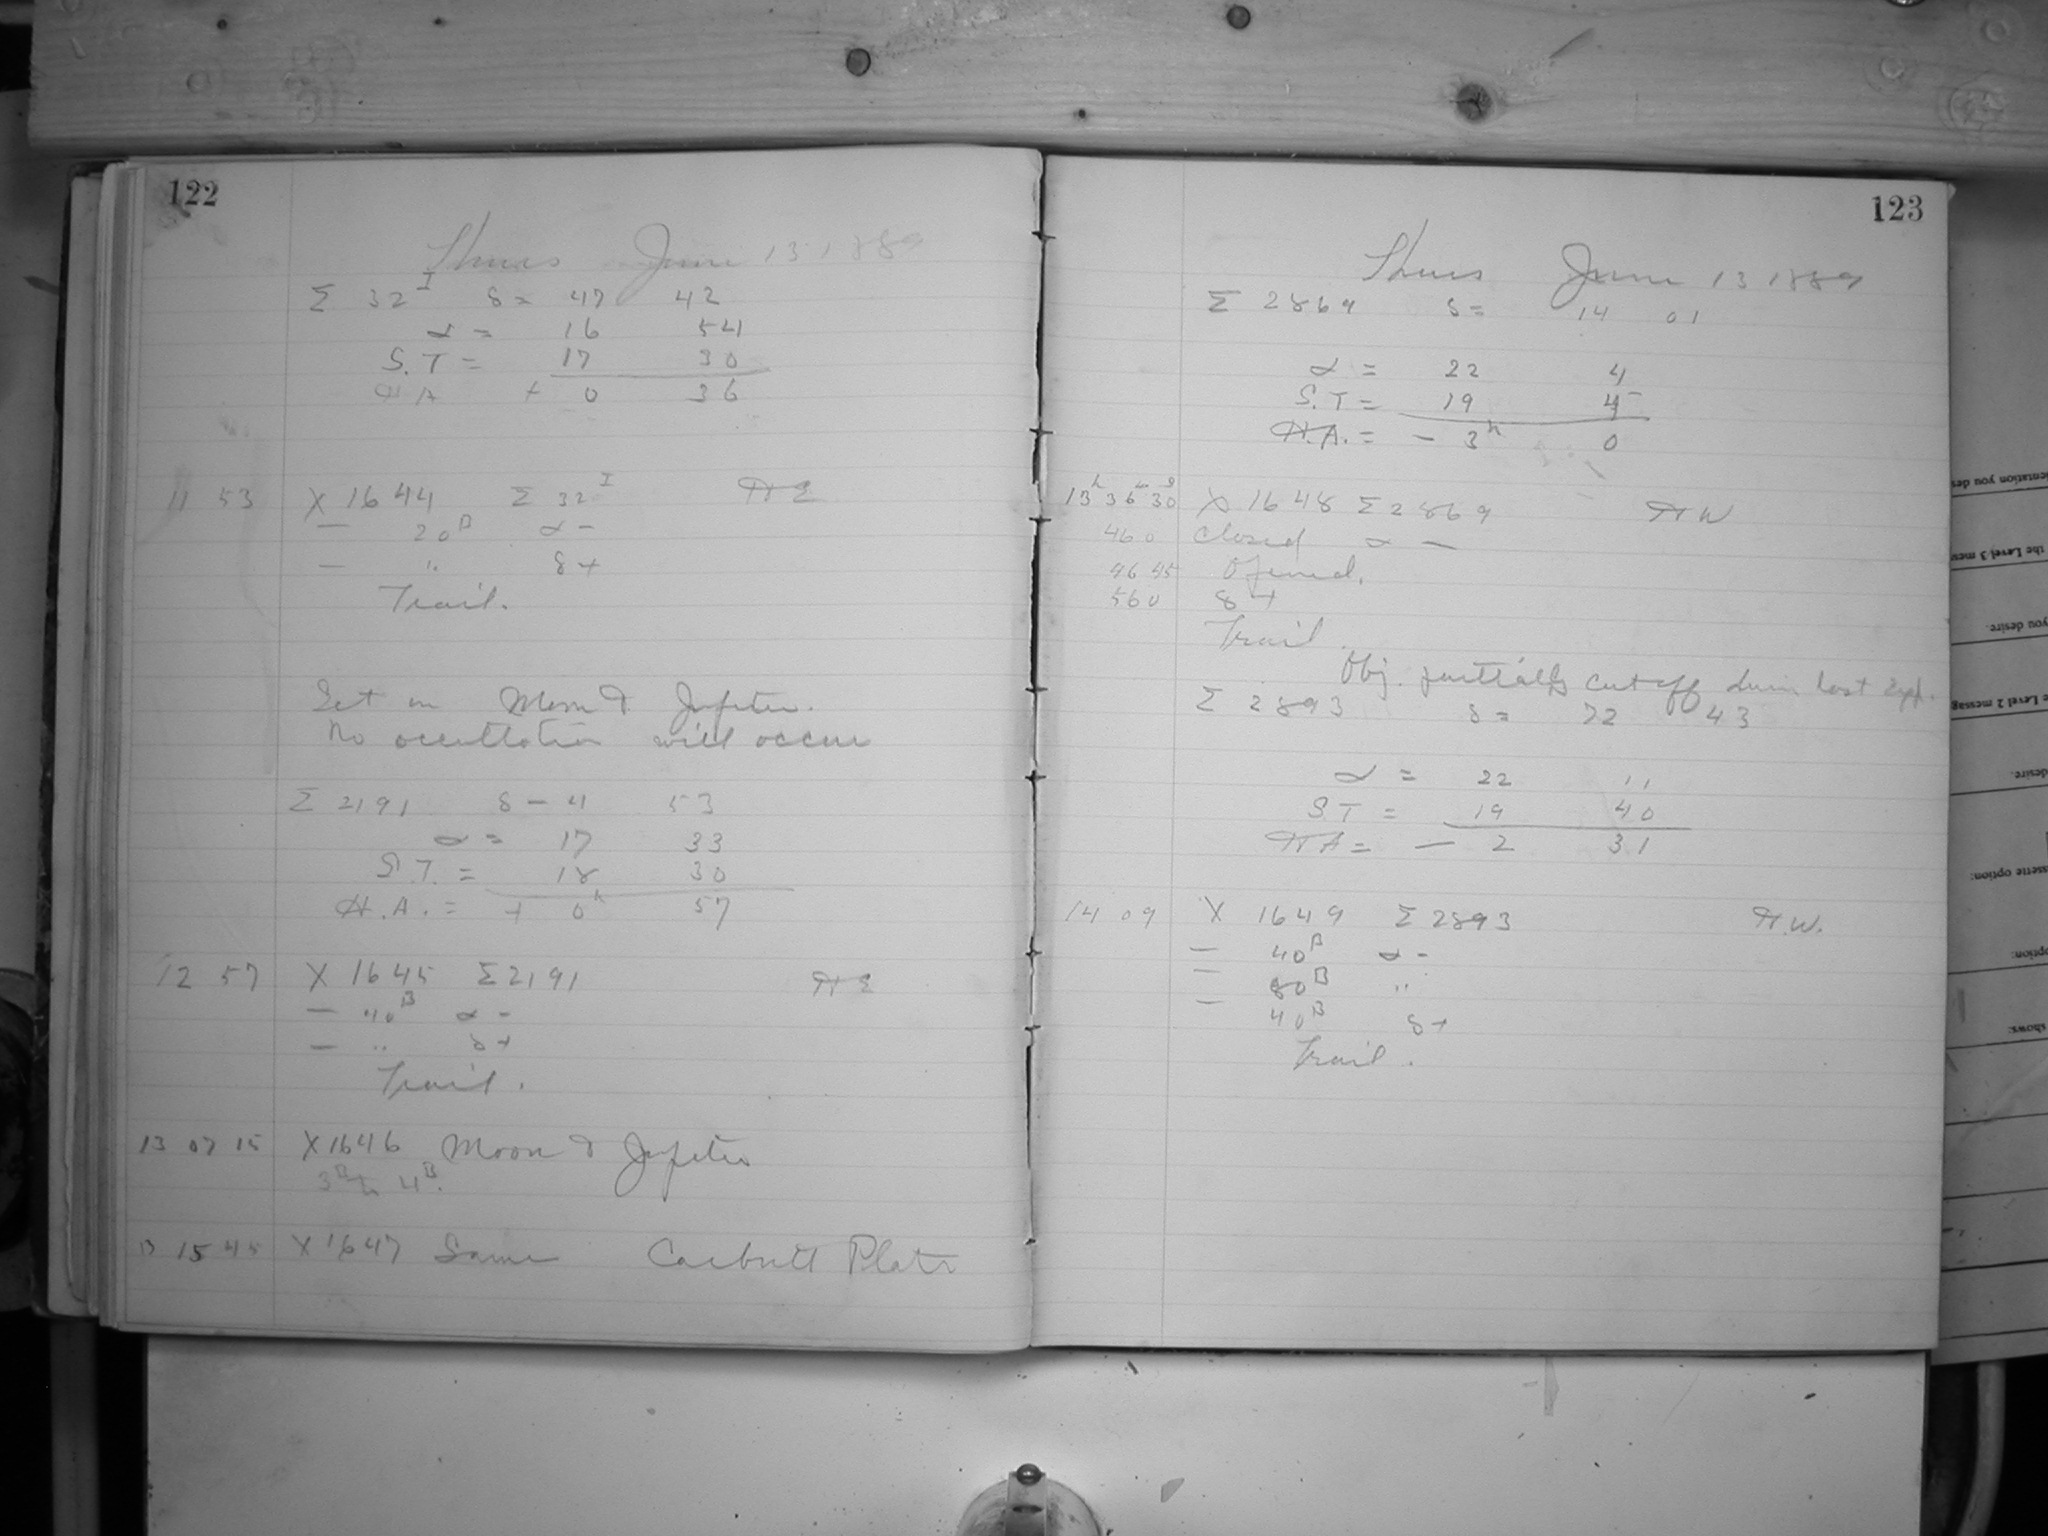 122
Thurs June 13 1889
Σ 32 I δ = 47 42
α = 16 54
S.T = 17 30
H A + 0 36
11 53 X 1644 Σ 32 I H E
— 20 B α -
— " δ +
Trail.
Set on Moon & Jupiter.
No occultation will occur
Σ 2191 δ - 4 53
α = 17 33
S.T. = 18 30
H.A. = + 0 h 57
12 57 X 1645 Σ 2191 H E
— 40 B α -
— " δ +
Trail.
13 07 15 X 1646 Moon & Jupiter
3 B to 4 B.
13 15 45 X 1647 Same Carbutt Plate
123
Thurs June 13 1889
Σ 2869 δ = 14 01
α = 22 4
S.T = 19 4
H.A. = - 3 h 0
13 h 36 m 30 s X 1648 Σ 2869 H W
46 0 Closed α —
46 45 Opened.
56 0 δ +
Trail
Obj. partially cut off durin last Exp.
Σ 2893 δ = 72 43
α = 22 11
S T = 19 40
H A = — 2 31
14 09 X 1649 Σ 2893 H.W.
— 40 B α -
— 80 B "
— 40 B δ +
Trail.